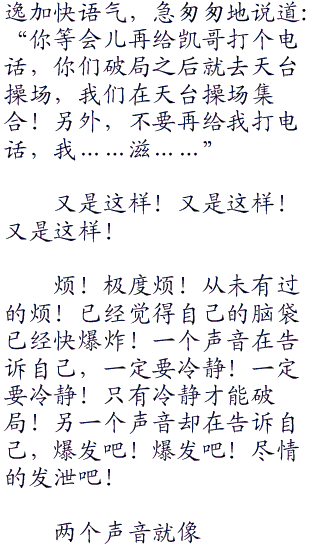 逸加快语气，急匆匆地说道：
“你等会儿再给凯哥打个电
话，你们破局之后就去天台
操场，我们在天台操场集
合！另外，不要再给我打电
话，我……滋……”
又是这样！又是这样！
又是这样！
烦！极度烦！从未有过
的烦！已经觉得自己的脑袋
已经快爆炸！一个声音在告
诉自己，一定要冷静！一定
要冷静！只有冷静才能破
局！另一个声音却在告诉自
己，爆发吧！爆发吧！尽情
的发泄吧！
两个声音就像